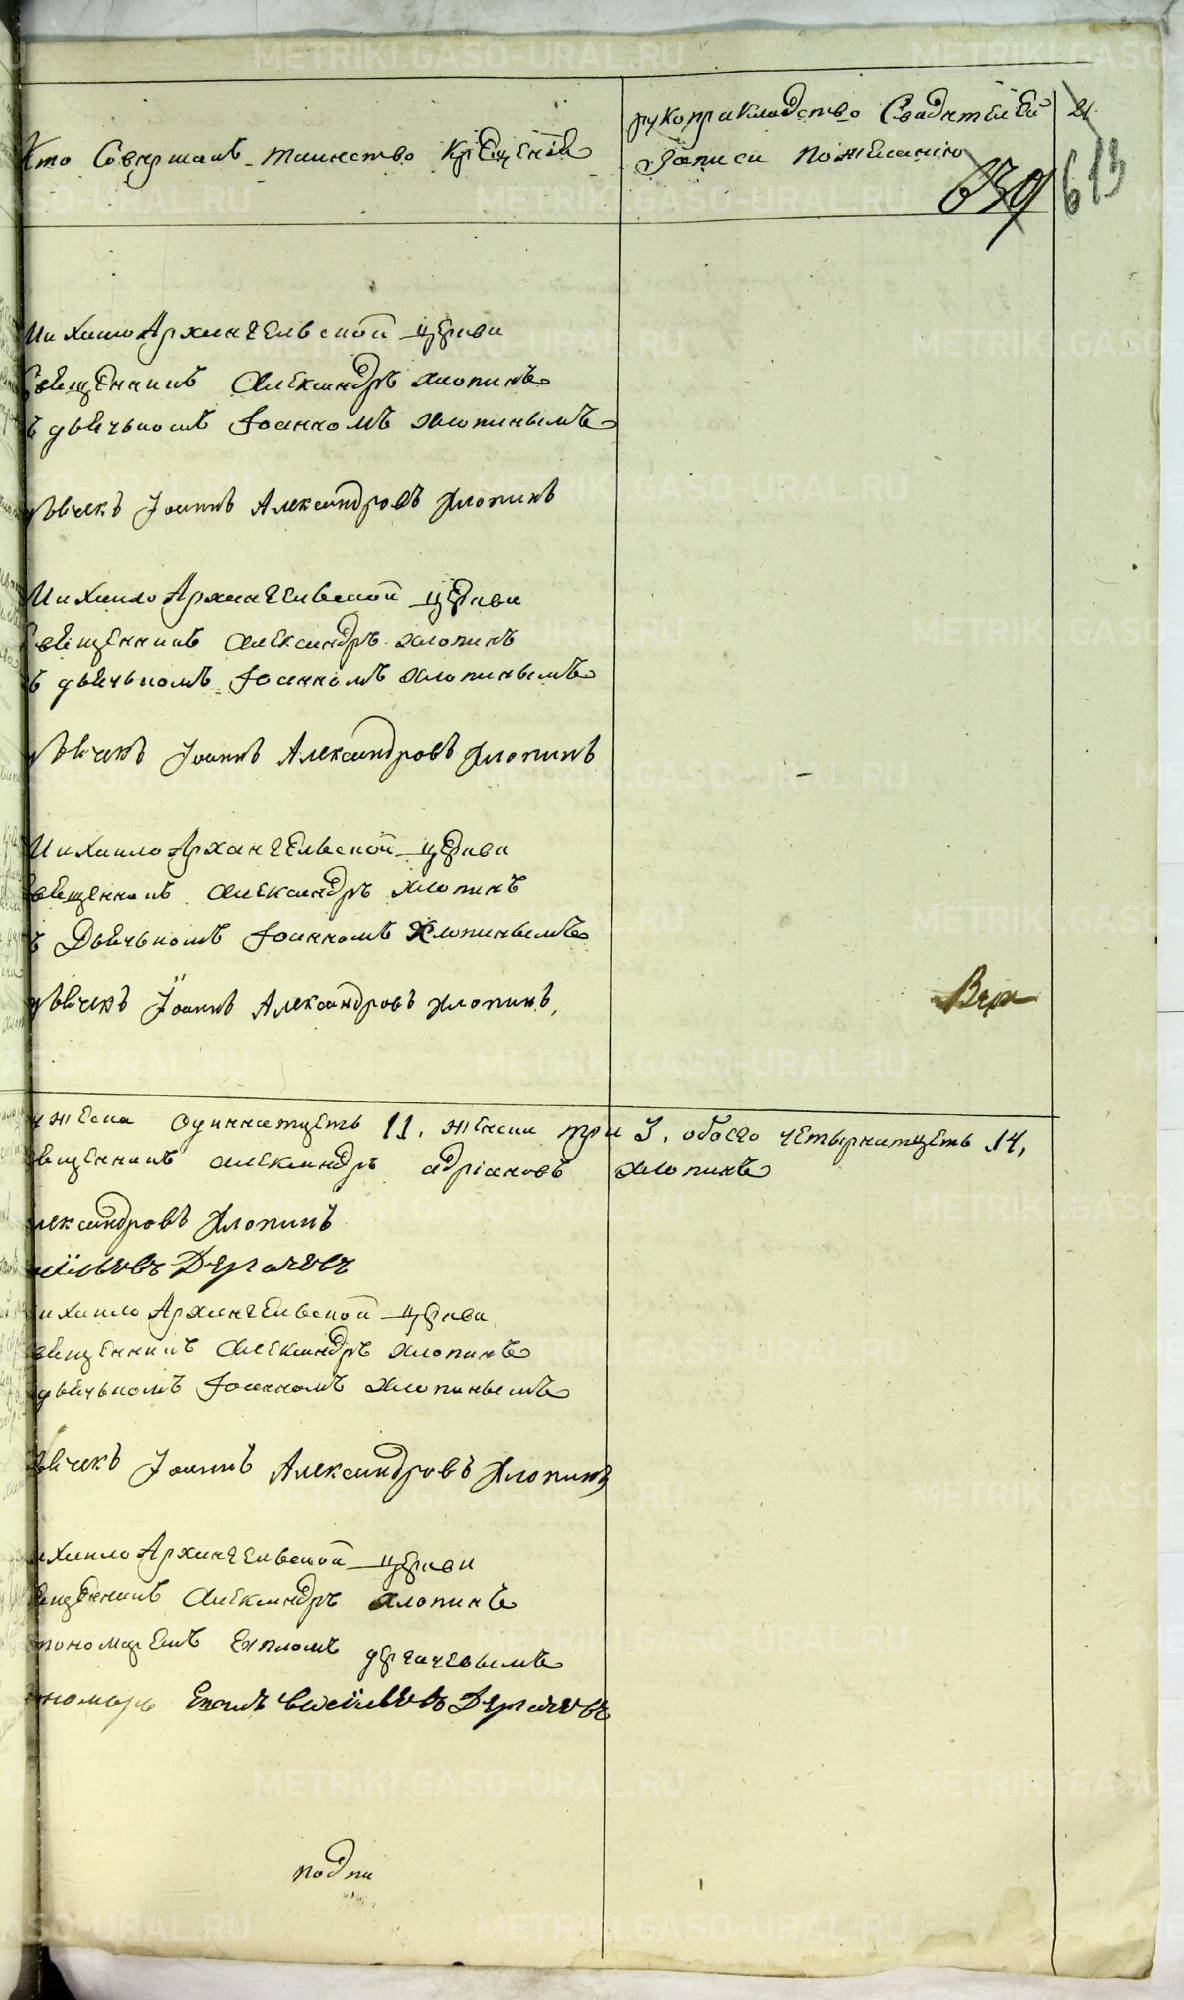 Кто Совершалъ таинство крещенія
рукоприкладство Свидѣтелей
записи по желанію
21
639
613
Михаило Архангельской церкви
Священникъ Александръ Хлопинъ
съ дьячькомъ Іоанномъ Хлопинымъ
дьячекъ Іоаннъ Александровъ Хлопинъ
Михаило Архангельской церкви
Священникъ Александръ Хлопинъ
съ дьячькомъ Іоанномъ Хлопинымъ
дьячекъ Іоаннъ Александровъ Хлопинъ
Михаило Архангельской церкви
Священникъ Александръ Хлопинъ
съ Дьячькомъ Іоанномъ Хлопинымъ
дьячекъ Іоаннъ Александровъ Хлопинъ
Верх
мужеска одиннатцеть 11, женска три 3, обоего четырнатцеть 14,
священникъ Александръ Адріановъ Хлопинъ
лександровъ Хлопинъ
асильевъ Дергачевъ
ихаило Архангельской церкви
вященникъ Александръ Хлопинъ
дьячькомъ Іоанномъ Хлопинымъ
ьячекъ Іоаннъ Александровъ Хлопинъ
ихаило Архангельской церкви
вященникъ Александръ Хлопинъ
пономаремъ Евпломъ Дергачевымъ
ономарь Евплъ Васильевъ Дергачевъ
подпи
METRIKI.GASO-URAL.RU